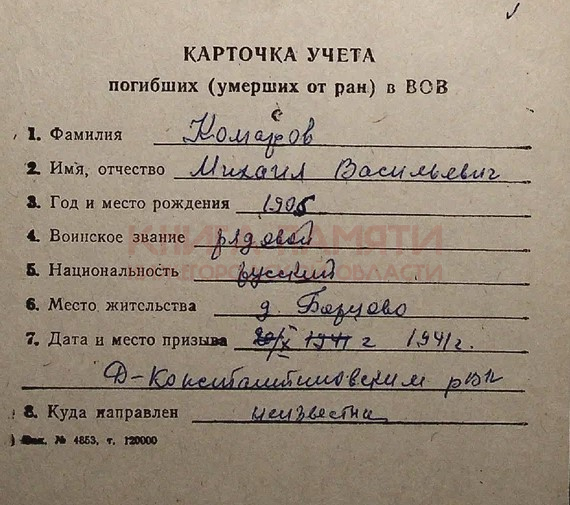 КАРТОЧКА УЧЕТА
погибших (умерших от ран) в ВОВ
с
1. Фамилия Комаров
2. Имя, отчество Михаил Васильевич
3. Год и место рождения 1906
4. Воинское звание рядовой
КНИГА ПАМЯТИ
5. Национальность русский
НИЖЕГОРОДСКОЙ ОБЛАСТИ
6. Место жительства д. Борцово
7. Дата и место призыва 1941 г 1941г.
Д-Константиновским рвк
8. Куда направлен неизвестно
Зак. № 4853, т. 120000